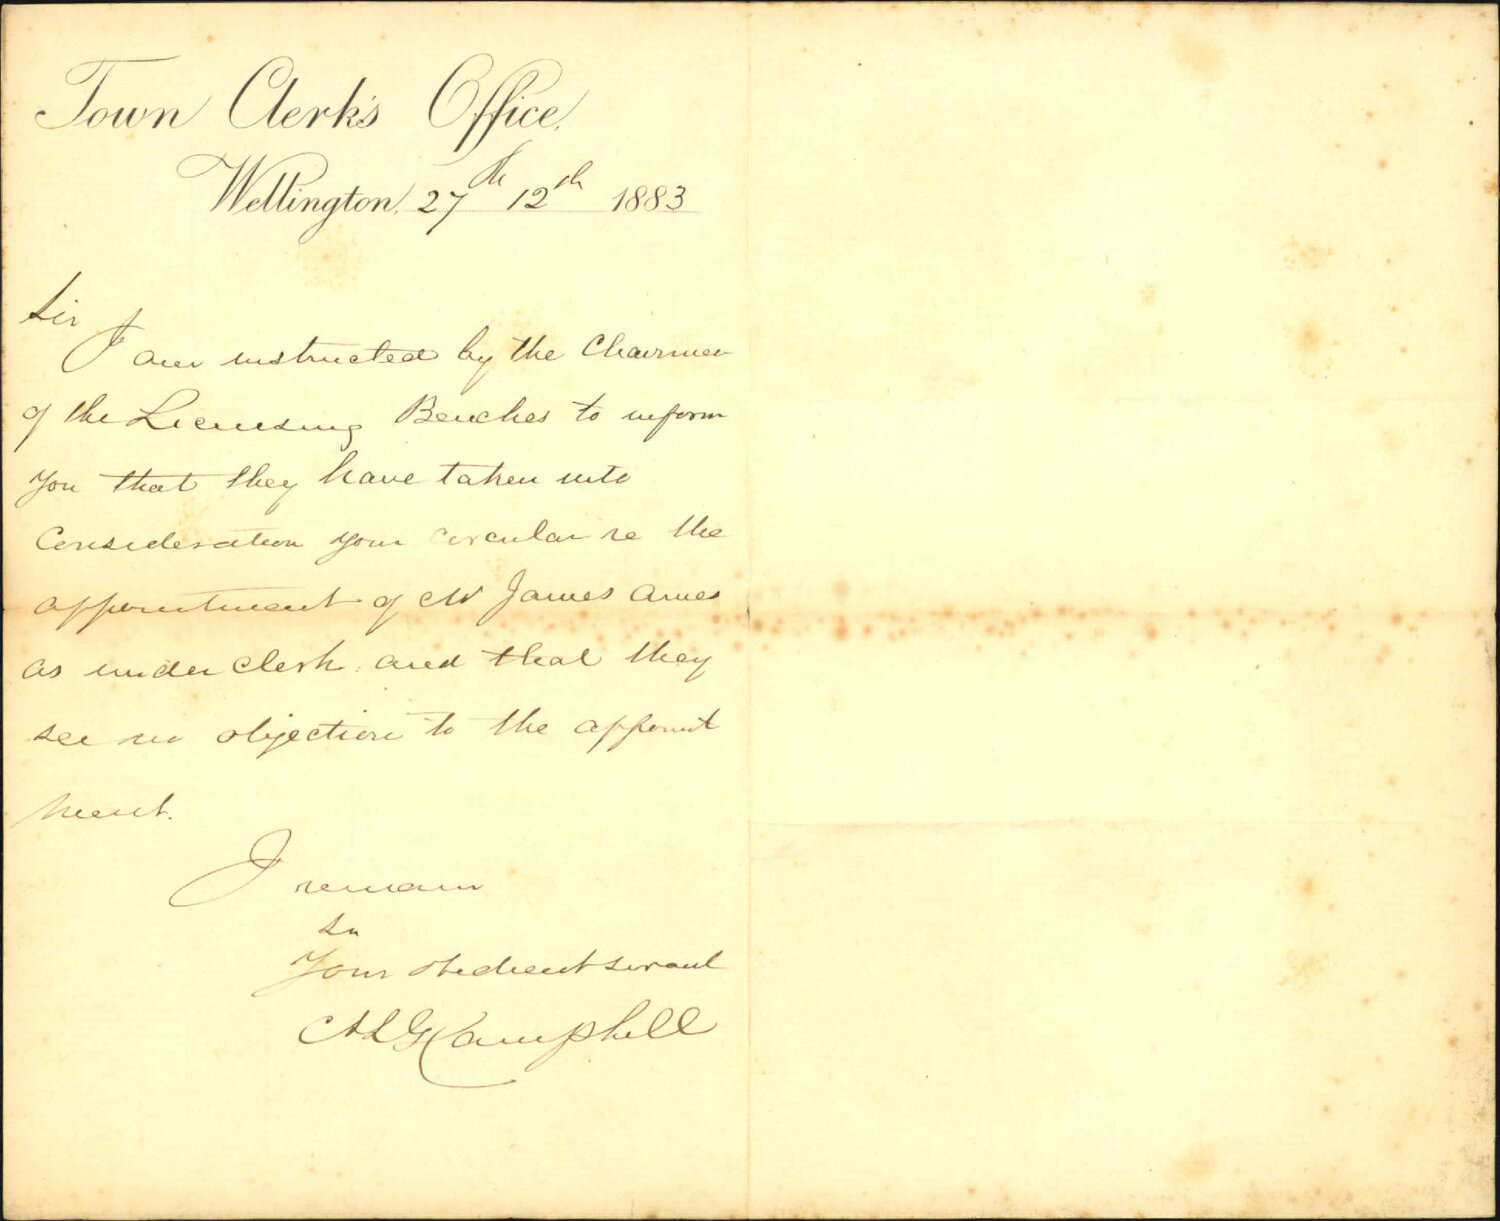 Town Clerk's Office,
Wellington, 27th 12th 1883
Sir
I am instructed by the Chairmen
of the Licensing Benches to inform
you that they have taken into
Consideration your circular re the
appointment of Mr James Ames
as under clerk and that they
see no objection to the appoint
ment.
I remain
Sir
Your obedient servant
Campbell